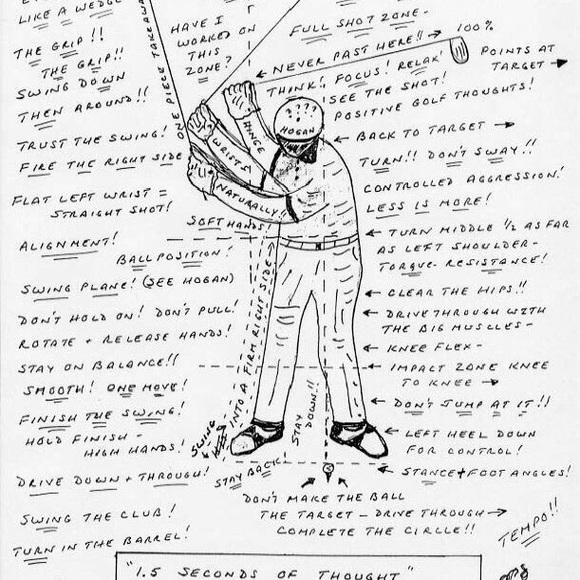 LIKE A WEDGE
THE GRIP!!
THE GRIP!!
SWING DOWN
THEN AROUND!!
TRUST THE SWING!
FIRE THE RIGHT SIDE
FLAT LEFT WRIST =
STRAIGHT SHOT!
ALIGNMENT!
BALL POSITION!
SWING PLANE! (SEE HOGAN)
DON'T HOLD ON! DON'T PULL!
ROTATE + RELEASE HANDS!
STAY ON BALANCE!!
SMOOTH! ONE MOVE!
FINISH THE SWING!
HOLD FINISH -
HIGH HANDS!
DRIVE DOWN + THROUGH!
SWING THE CLUB!
TURN IN THE BARREL!
ONE PIECE TAKEAWAY
HAVE I
WORKED ON
THIS
ZONE?
FULL SHOT ZONE-
100%
NEVER PAST HERE!!
THINK! FOCUS! RELAX!
SEE THE SHOT!
POSITIVE GOLF THOUGHTS!
POINTS AT
TARGET
????
HOGAN
HINGE
WRISTS
NATURALLY!!
SOFT HANDS!
BACK TO TARGET
TURN!! DON'T SWAY!!
CONTROLLED AGGRESSION!
LESS IS MORE!
TURN MIDDLE 1/2 AS FAR
AS LEFT SHOULDER-
TORQUE- RESISTANCE!
CLEAR THE HIPS!!
DRIVE THROUGH WITH
THE BIG MUSCLES-
KNEE FLEX-
IMPACT ZONE KNEE
TO KNEE
DON'T JUMP AT IT!!
LEFT HEEL DOWN
FOR CONTROL!
STANCE + FOOT ANGLES!
SWING
INTO A FIRM RIGHT SIDE
STAY
DOWN!!
STAY BACK
DON'T MAKE THE BALL
THE TARGET - DRIVE THROUGH
COMPLETE THE CIRCLE!!
TEMPO!!
"1.5 SECONDS OF THOUGHT"